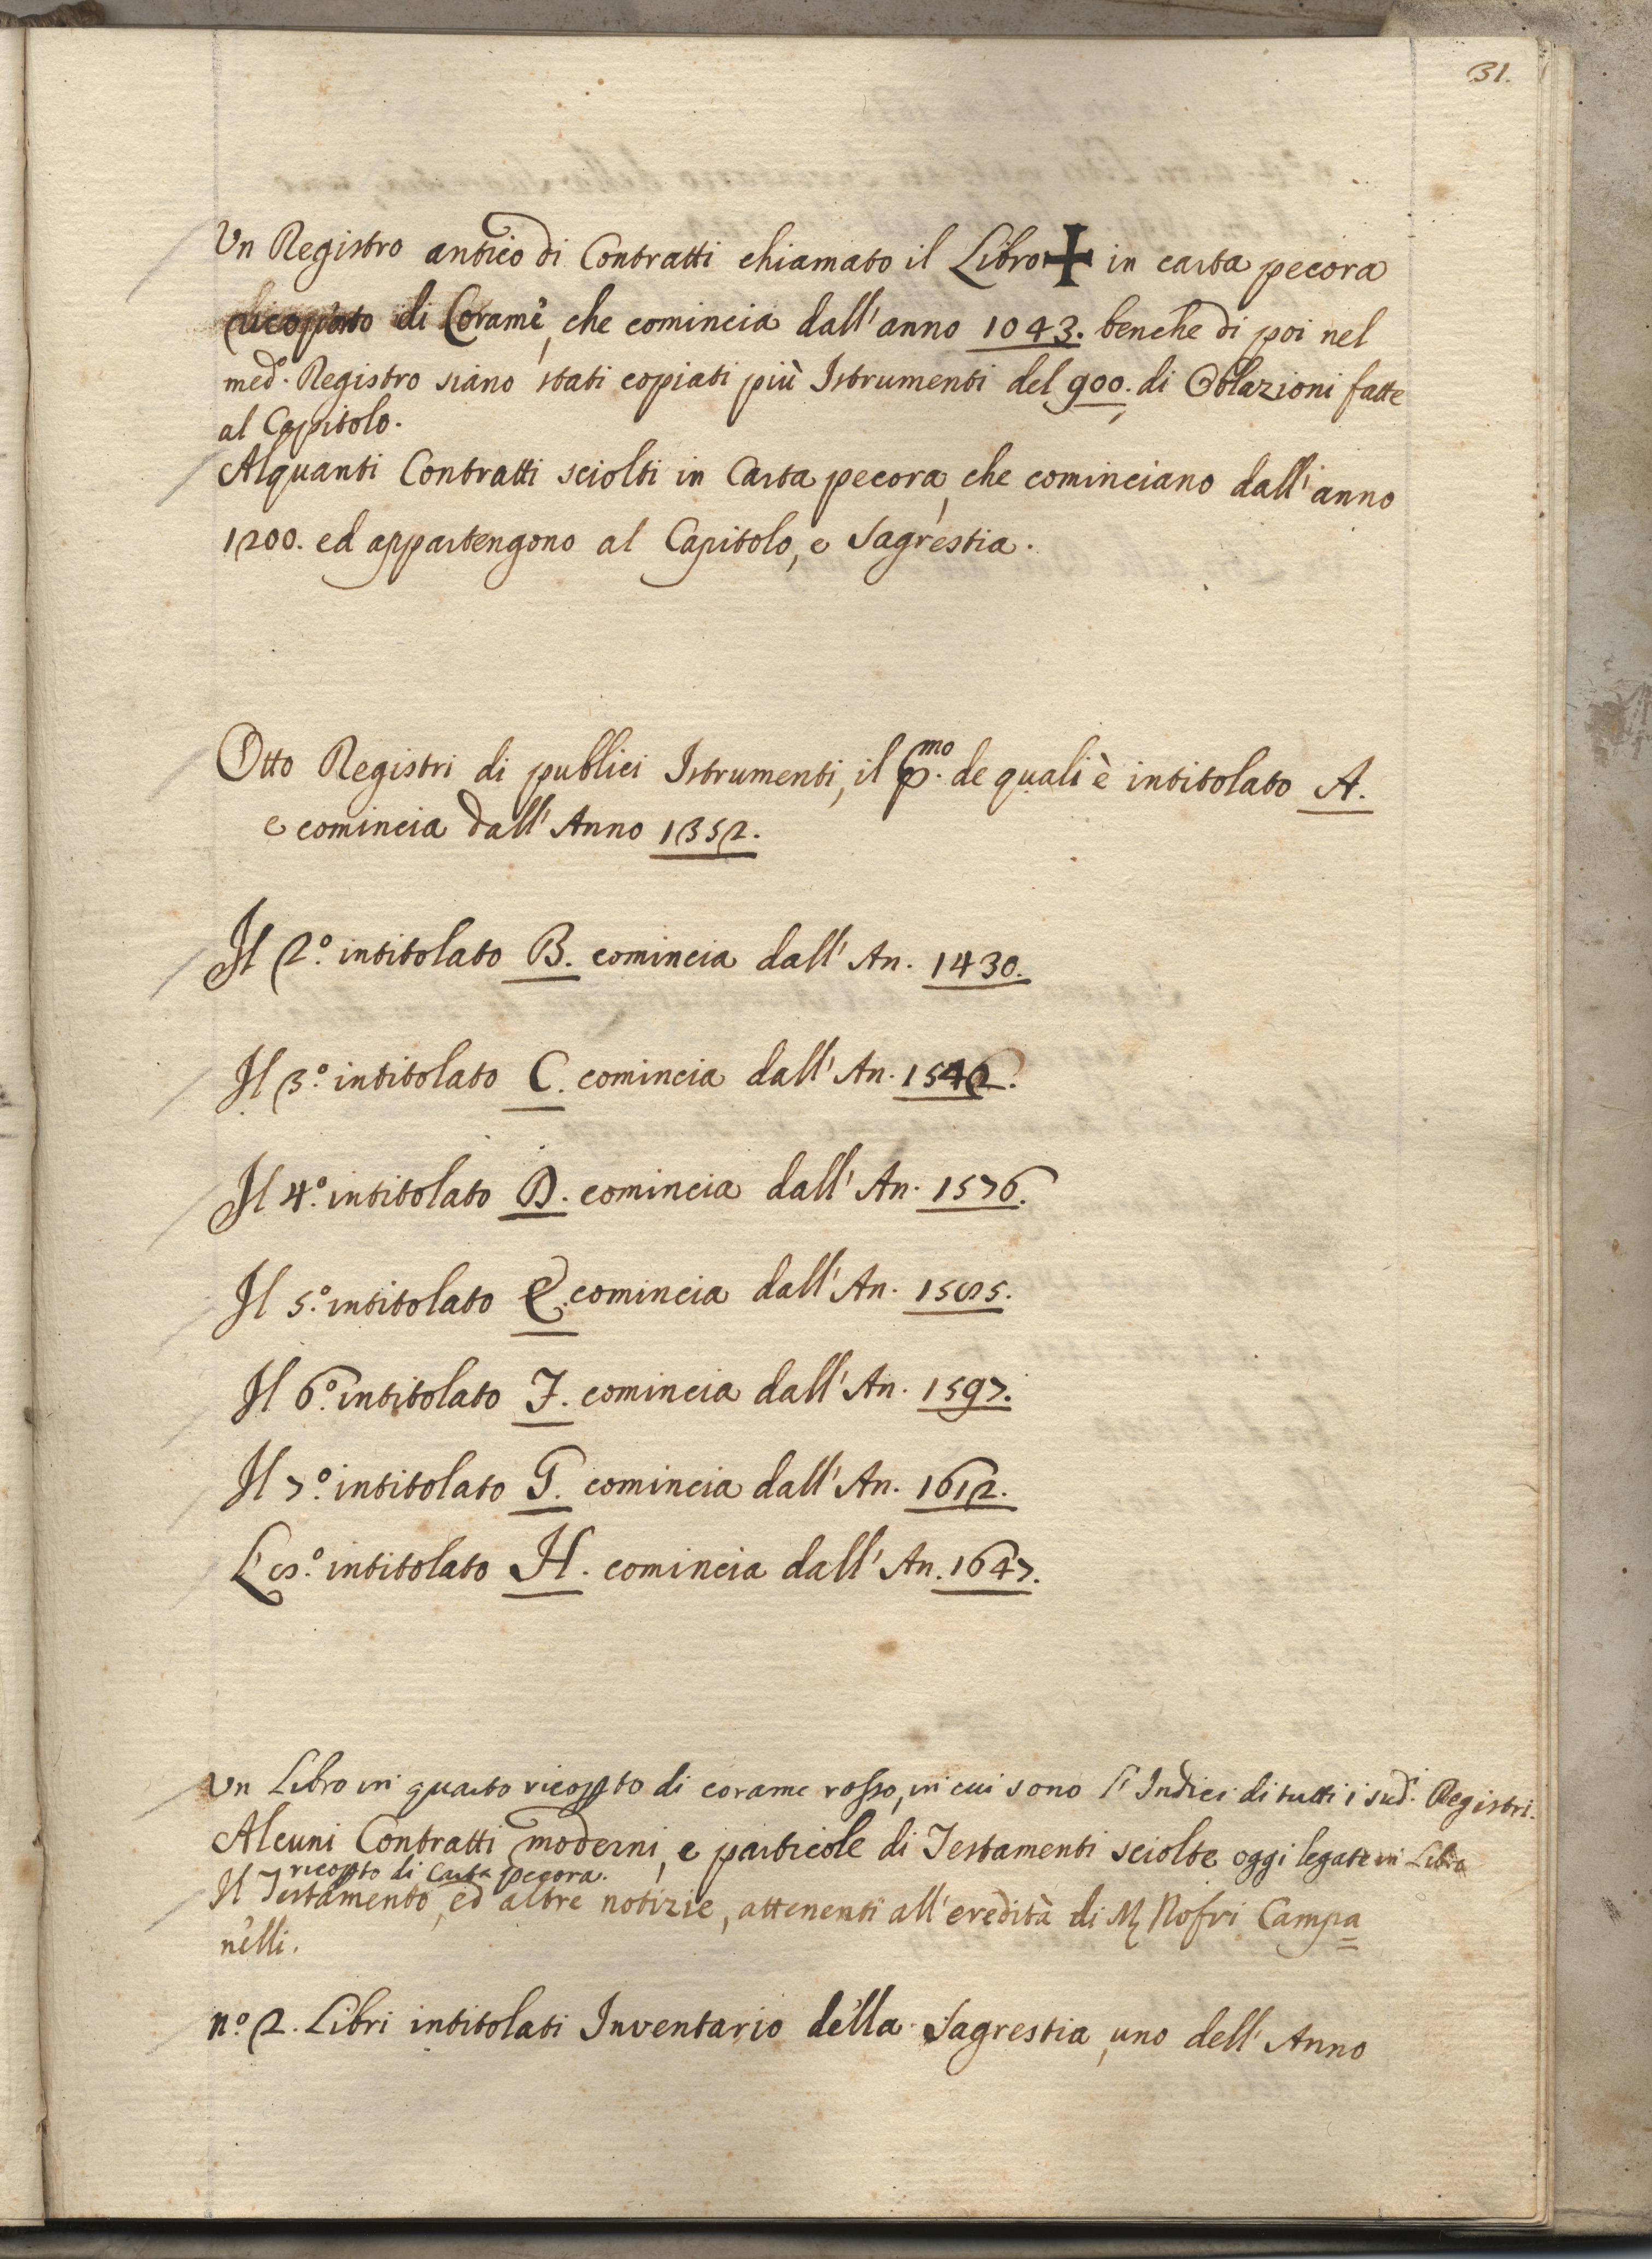 31.
Un Registro antico di Contratti chiamato il Libro ✚ in carta pecora
ricoperto di Corame, che comincia dall'anno 1043. benche di poi nel
med.º Registro siano stati copiati più Istrumenti del 900. di Oblazioni fatte
al Capitolo.
Alquanti Contratti sciolti in Carta pecora, che cominciano dall'anno
1200. ed appartengono al Capitolo, e Sagrestia.
Otto Registri di publici Istrumenti, il p.mo de quali è intitolato A.
e comincia dall'Anno 1352.
Il 2.º intitolato B. comincia dall'An. 1430.
Il 3.º intitolato C. comincia dall'An. 1542.
Il 4.º intitolato D. comincia dall'An. 1576.
Il 5.º intitolato E. comincia dall'An. 1585.
Il 6.º intitolato F. comincia dall'An. 1597.
Il 7.º intitolato G. comincia dall'An. 1612.
L'8.º intitolato H. comincia dall'An. 1647.
Un Libro in quarto ricopto di corame rosso, in cui sono l'Indici di tutti i sud.i Registri.
Alcuni Contratti moderni, e particole di Testamenti sciolte oggi legate in Libro
ricopto di Carta pecora.
Il Testamento, ed altre notizie, attenenti all'eredità di M Nofri Campa=
nelli.
n.º 2. Libri intitolati Inventario della Sagrestia, uno dell'Anno